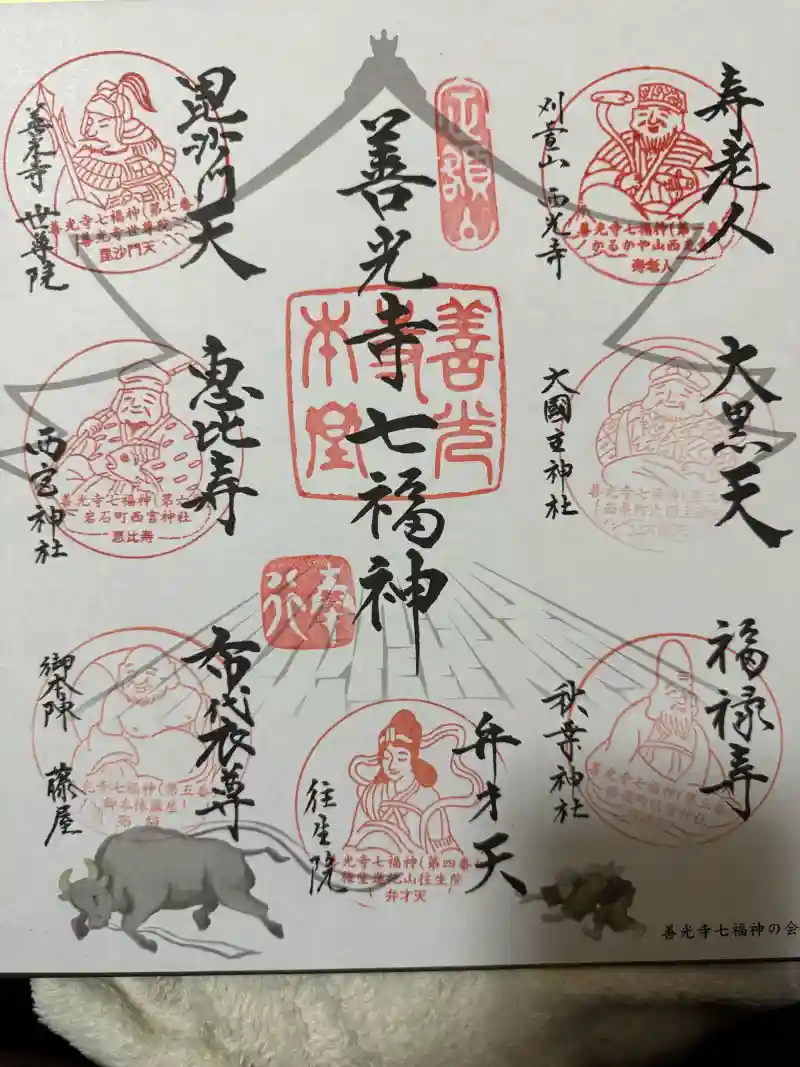 寿老人
刈萱山 西光寺
善光寺七福神(第一番
かるかや山西光寺
寿老人
大黒天
大國主神社
善光寺七福神(第二
福禄寿
秋葉神社
善光寺七福神(第三番
定額山
善光寺七福神
善光
寺
本堂
奉行
弁才天
往生院
善光寺七福神(第四番
権堂蓮池山往生院
弁才天
毘沙門天
善光寺 世尊院
善光寺七福神(第七番
善光寺世尊院
毘沙門天
恵比寿
西宮神社
善光寺七福神(第六
岩石町西宮神社
恵比寿
布袋尊
御本陣 藤屋
光寺七福神(第五番
御本陣藤屋
善光寺七福神の会